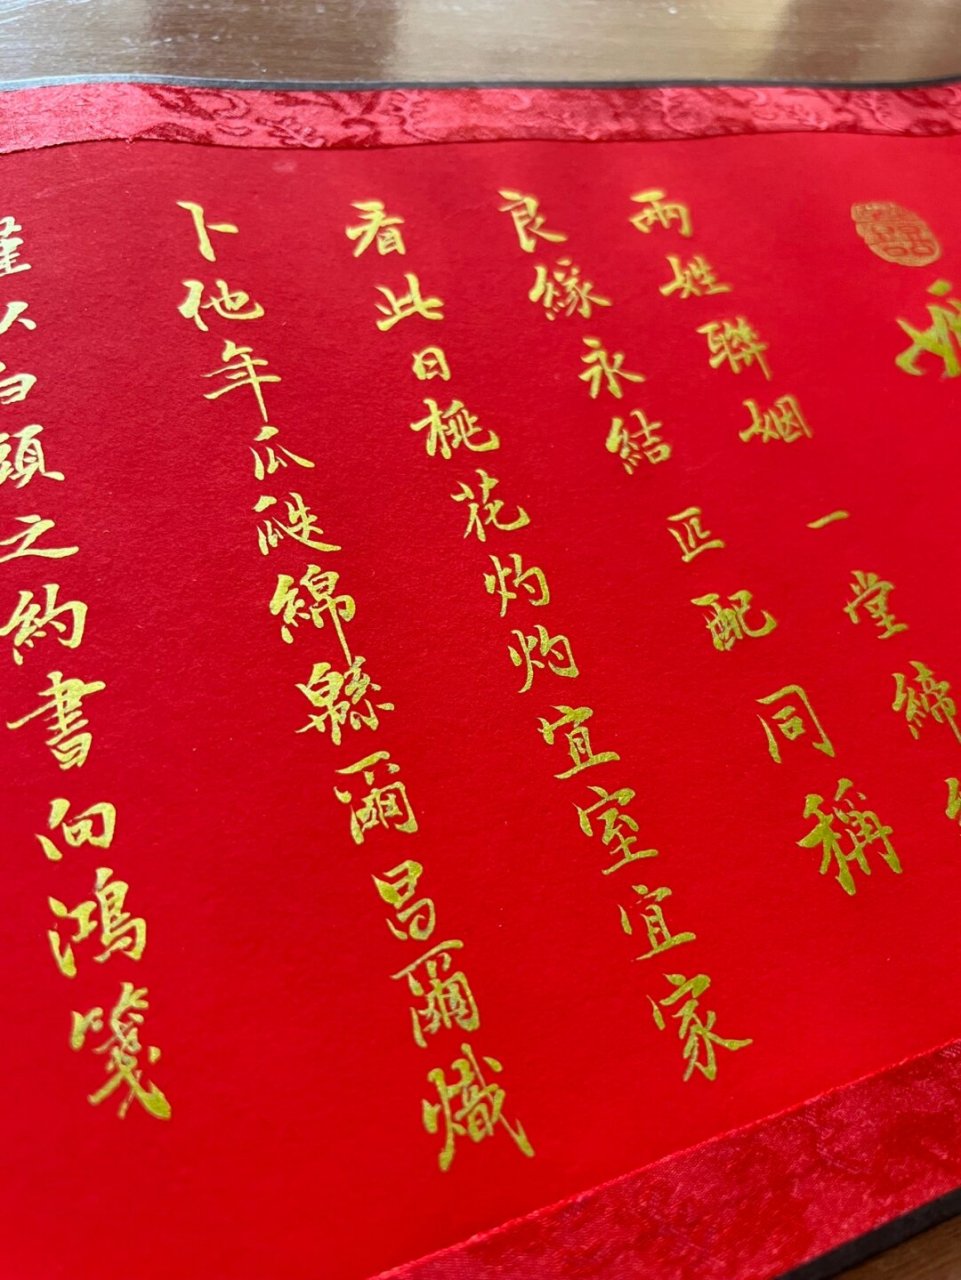 兩姓聯姻 一堂締
良緣永結 匹配同稱
看此日桃花灼灼宜室宜家
卜他年瓜瓞綿緜爾昌爾熾
謹以白頭之約書向鴻箋